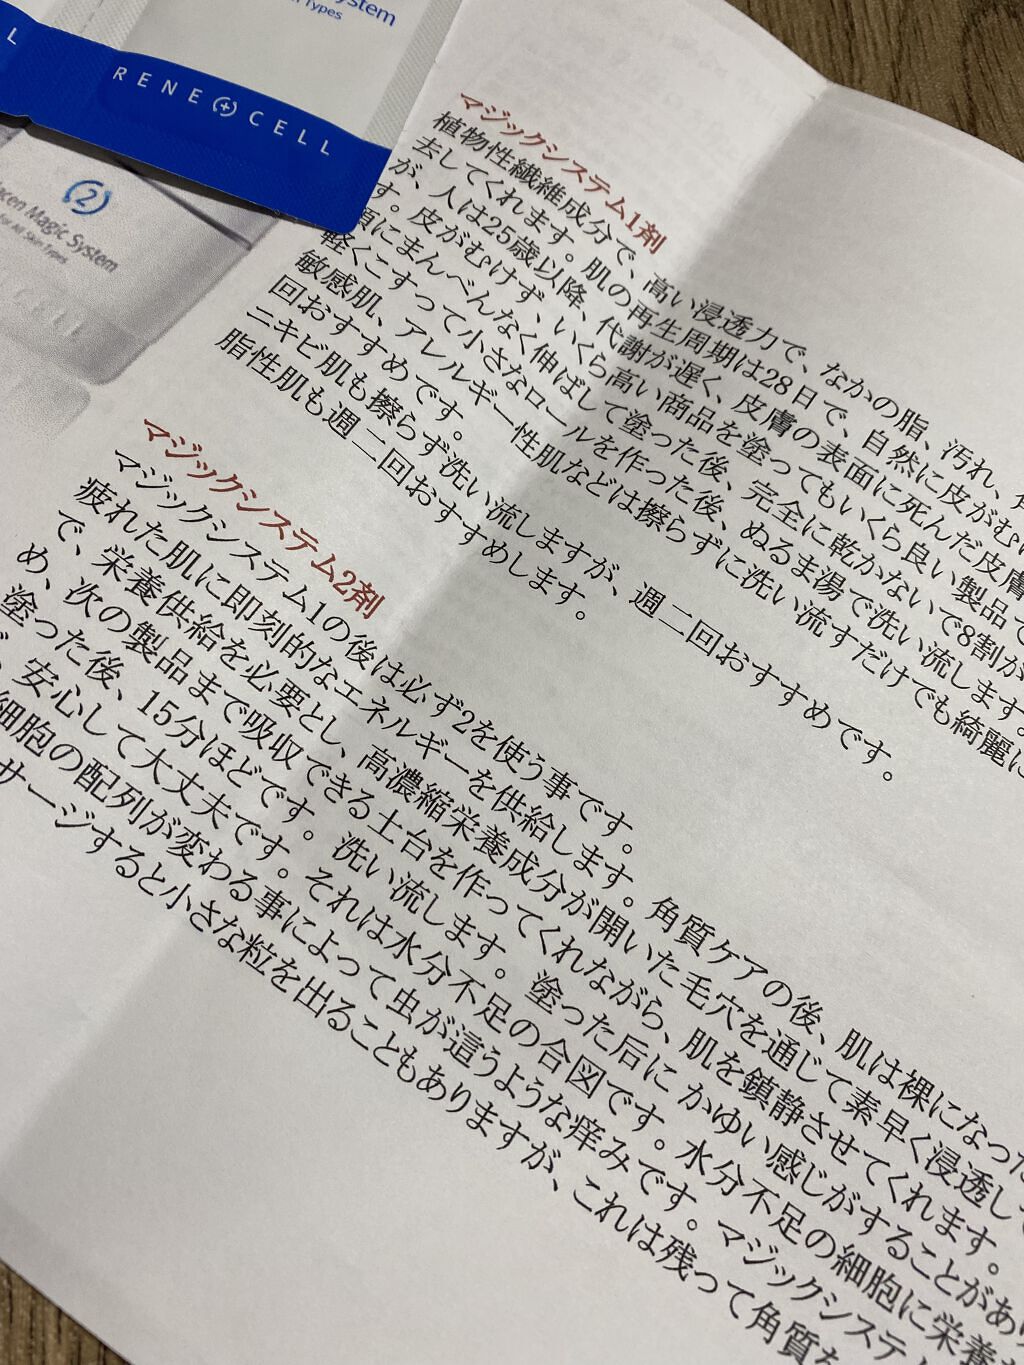 System
Types
L
RENE CELL
2
acen Magic System
for All Skin Types
マジックシステム1剤
植物性繊維成分で、高い浸透力で、なかの脂、汚れ、
去してくれます。肌の再生周期は28日で、自然に皮がむけ
が、人は25歳以降、代謝が遅く、皮膚の表面に死んだ皮膚
す。皮がむけず、いくら高い商品を塗ってもいくら良い製品で
顔にまんべんなく伸ばして塗った後、完全に乾かないで8割が
軽くこすって小さなロールを作った後、ぬるま湯で洗い流します。
敏感肌、アレルギー性肌などは擦らずに洗い流すだけでも綺麗に
回おすすめです。
ニキビ肌も擦らず洗い流しますが、週二回おすすめです。
脂性肌も週二回おすすめします。
マジックシステム2剤
マジックシステム1の後は必ず2を使う事です。
疲れた肌に即刻的なエネルギーを供給します。角質ケアの後、肌は裸になった
で、栄養供給を必要とし、高濃縮栄養成分が開いた毛穴を通じて素早く浸透し
め、次の製品まで吸収できる土台を作ってくれながら、肌を鎮静させてくれます。
塗った後、15分ほどです。洗い流します。塗った后に かゆい感じがすることがあり
、安心して大丈夫です。それは水分不足の合図です。水分不足の細胞に栄養
細胞の配列が変わる事によって虫が這うような痒みです。マジックシステ
サージすると小さな粒を出ることもありますが、これは残って角質を